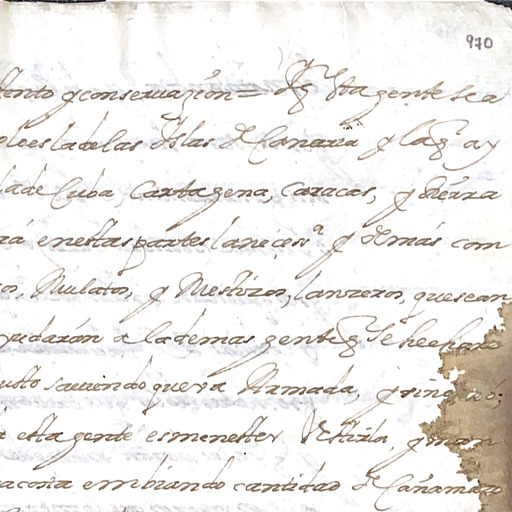 970
tento y conseruazion = Q esta gente sea
lo es la de las Yslas de Canaria y la q ay
la de Cuba, Cartagena, Caracas, y tierra
rá en estas partes la neçess.ª y demás com
os, Mulatos, y Mestizos, lanzeros, que sean
yudarán a la demas gente q se hechare
usto sauiendo que va Armada, y sino, nó;
a esta gente es menester vestirla, y man
a costa embiando cantidad de Cañamazo